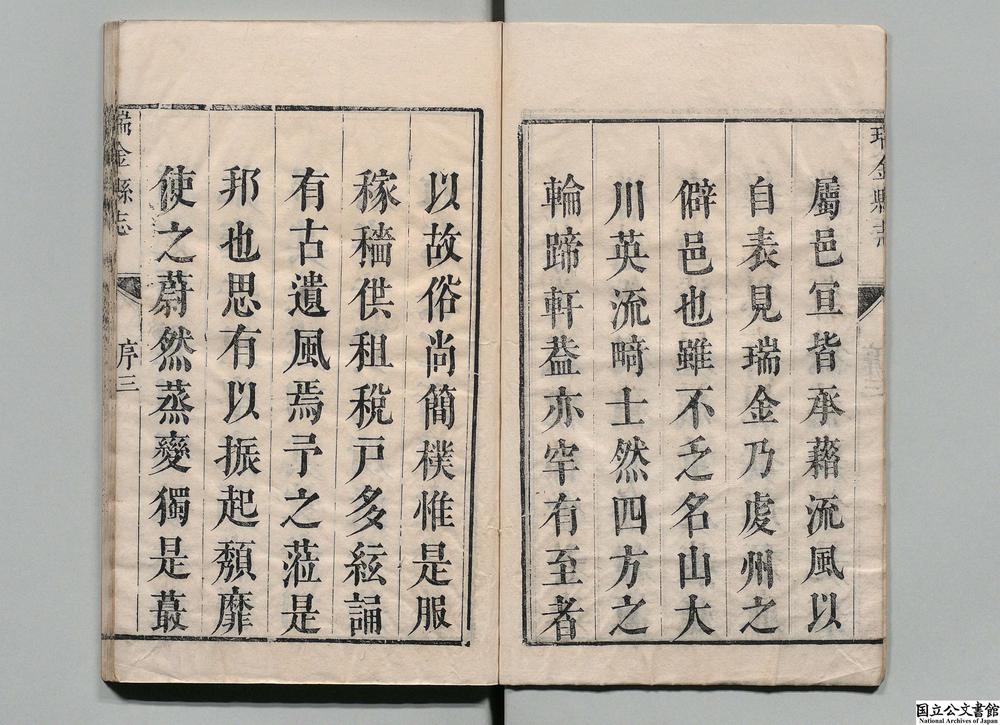 瑞金縣志
屬邑宣皆承藉流風以
自表見瑞金乃虔州之
僻邑也雖不乏名山大
川英流畸士然四方之
輪蹄軒葢亦罕有至者
以故俗尚簡樸惟是服
稼穡供租稅戸多絃誦
有古遺風焉予之蒞是
邦也思有以振起頽靡
使之蔚然蒸變獨是蕞
瑞金縣志
序三
国立公文書館
National Archives of Japan